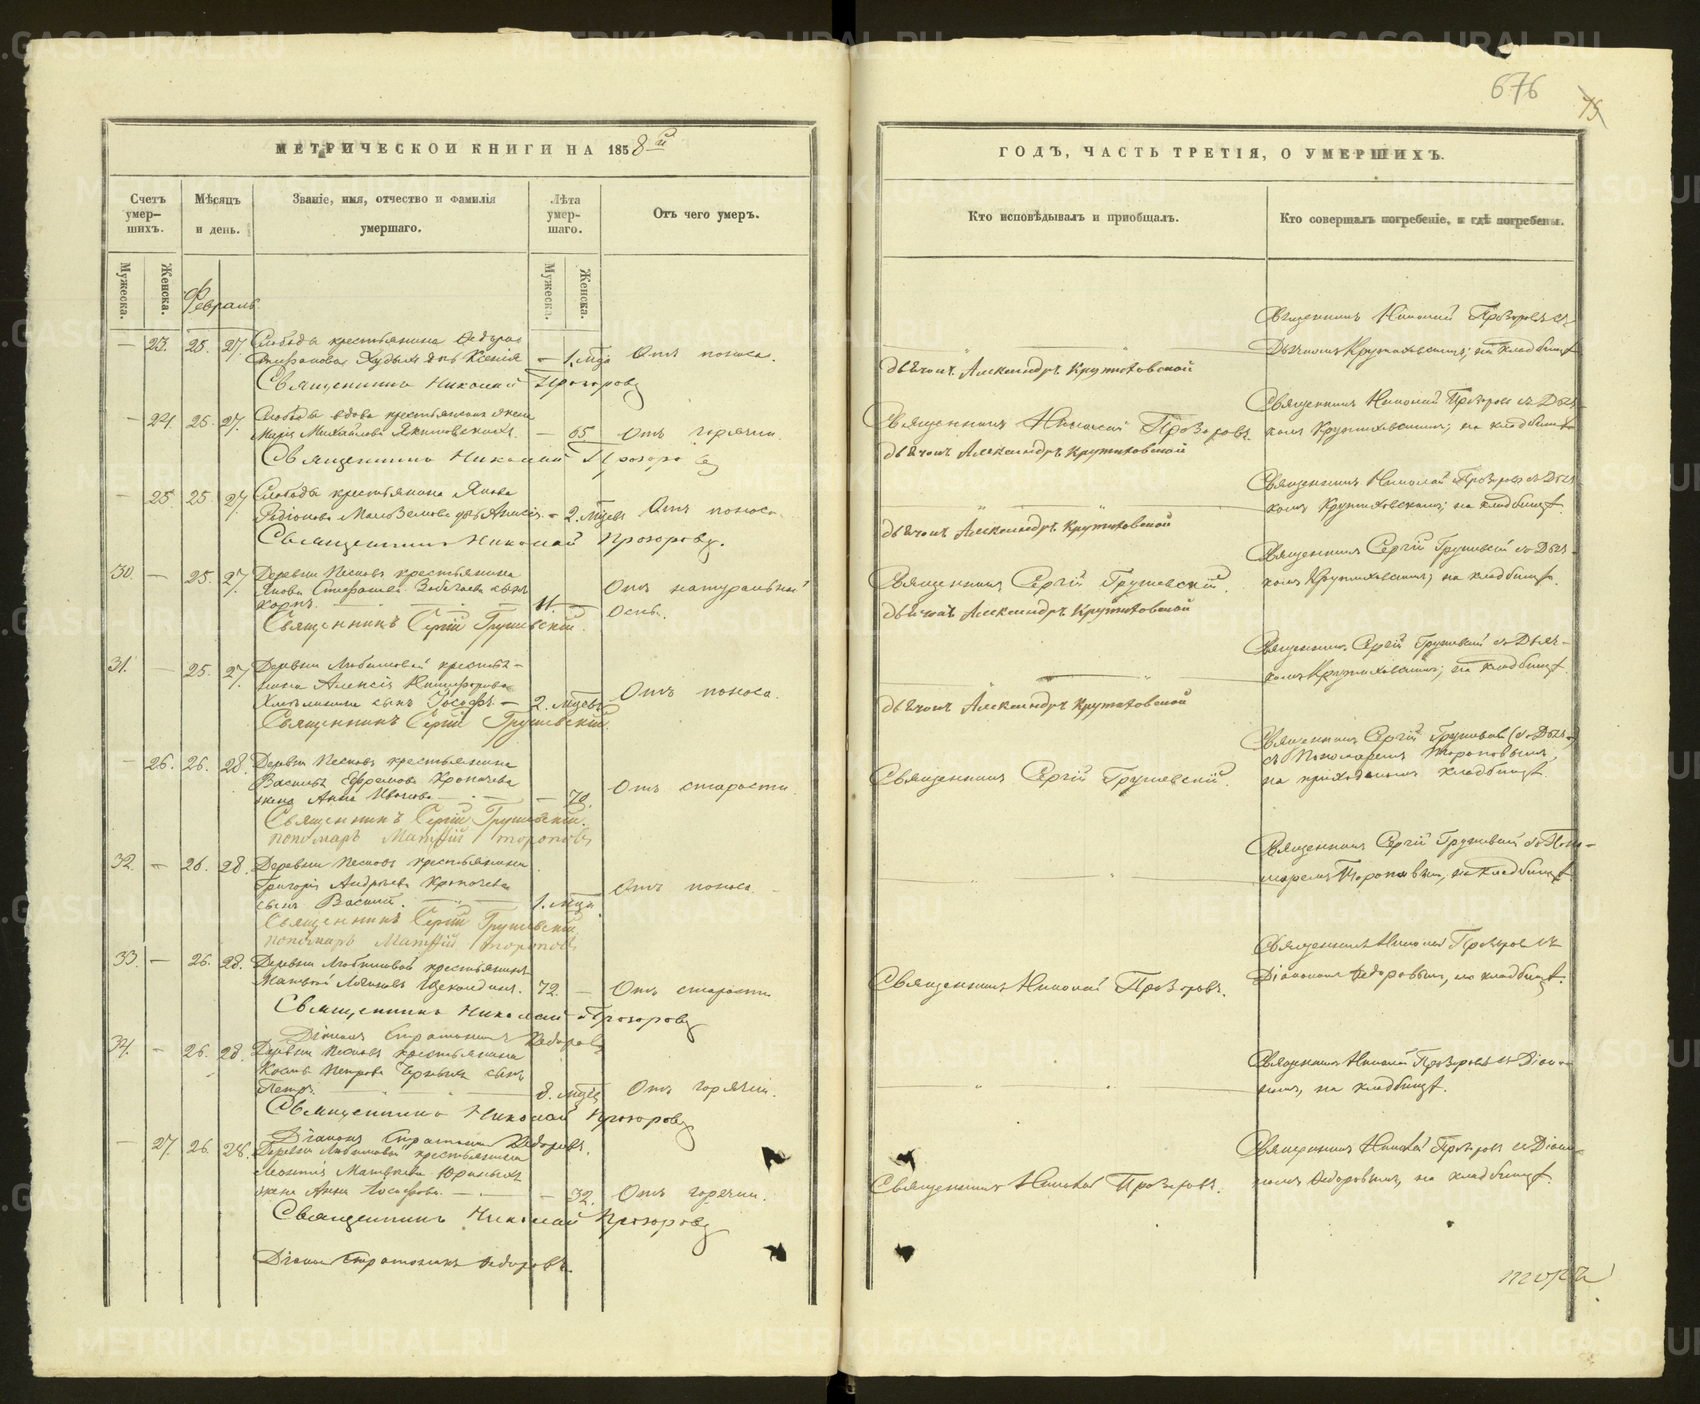 676
75
МЕТРИЧЕСКОЙ КНИГИ НА 1858й
Счетъ умер-
шихъ.
Мѣсяцъ
и день.
Званіе, имя, отчество и фамилія
умершаго.
Лѣта
умер-
шаго.
Отъ чего умеръ.
Мужеска.
Женска.
Мужеска.
Женска.
Февраль
— 23. 25. 27. Слободы крестьянина
дочь Ксенія — 1. мца Отъ поноса.
Священникъ Николай Прозоровъ
— 24. 26. 27. Слободы вдова крестьянская жена
Марія Михайлова — 65 Отъ горячки.
Священникъ Николай Прозоровъ
— 25 25 27. Слободы крестьянина Якова
Родіонова дочь — 2. мцевъ Отъ поноса.
Священникъ Николай Прозоровъ.
30. — 25. 27. Деревни Песковъ крестьянина
Якова сынъ
Карпъ. 11. — Отъ натуральной
оспы.
Священникъ Сергій Грушевскій.
31. — 25. 27. Деревни Любимовой крестья-
нина Алексія Никифорова
сынъ Іосифъ — 2. мцевъ Отъ поноса.
Священникъ Сергій Грушевскій.
— 26. 26. 28. Деревни Песковъ крестьянина
Василья Ефремова Кропачева
жена Анна Иванова — 70. Отъ старости.
Священникъ Сергій Грушевскій.
пономарь Матѳій Тороповъ
32. — 26. 28. Деревни Песковъ крестьянина
Григорія Андреева Кропачева
сынъ Василій. 1. мца. Отъ поноса. —
Священникъ Сергій Грушевскій.
пономарь Матѳій Тороповъ
33. — 26. 28. Деревни Любимовой крестьянинъ
72. — Отъ старости
Священникъ Николай Прозоровъ
Діаконъ Стратоникъ Ѳедоровъ
34. — 26. 28. Деревни Песковъ крестьянина
Петрова сынъ
Петръ. 8. мцевъ Отъ горячки.
Священникъ Николай Прозоровъ
Діаконъ Стратоникъ Ѳедоровъ.
— 27. 26. 28. Деревни Любимовой крестьянина
Леонтія Матвѣева
жена Анна — 32. Отъ горячки.
Священникъ Николай Прозоровъ
Діаконъ Стратоникъ Ѳедоровъ.
ГОДЪ, ЧАСТЬ ТРЕТІЯ, О УМЕРШИХЪ.
Кто исповѣдывалъ и пріобщалъ.
Кто совершалъ погребеніе, и гдѣ погребены.
Священникъ Николай Прозоровъ съ
Дьячкомъ Крутиховскимъ; на кладбищѣ
дьячокъ Александръ Крутиховской
Священникъ Николай Прозоровъ
Священникъ Николай Прозоровъ съ Дьяч-
комъ Крутиховскимъ; на кладбищѣ
дьячокъ Александръ Крутиховской
Священникъ Николай Прозоровъ съ Дьяч-
комъ Крутиховскимъ; на кладбищѣ.
дьячокъ Александръ Крутиховской
Священникъ Сергій Грушевскій.
Священникъ Сергій Грушевскій съ Дьяч-
комъ Крутиховскимъ; на кладбищѣ.
дьячокъ Александръ Крутиховской
Священникъ Сергій Грушевскій съ Дьяч-
комъ Крутиховскимъ; на кладбищѣ
дьячокъ Александръ Крутиховской
Священникъ Сергій Грушевскій.
Священникъ Сергій
съ Пономаремъ Тороповымъ,
на приходскомъ кладбищѣ
Священникъ Сергій Грушевскій съ Поно-
маремъ Тороповымъ, на кладбищѣ
Священникъ Николай Прозоровъ.
Священникъ Николай Прозоровъ съ
Діакономъ Ѳедоровымъ, на кладбищѣ.
Священникъ Николай Прозоровъ съ Діако-
номъ, на кладбищѣ.
Священникъ Николай Прозоровъ.
Священникъ Николай Прозоровъ съ Діако-
номъ Ѳедоровымъ, на кладбищѣ.
METRIKI.GASO-URAL.RU